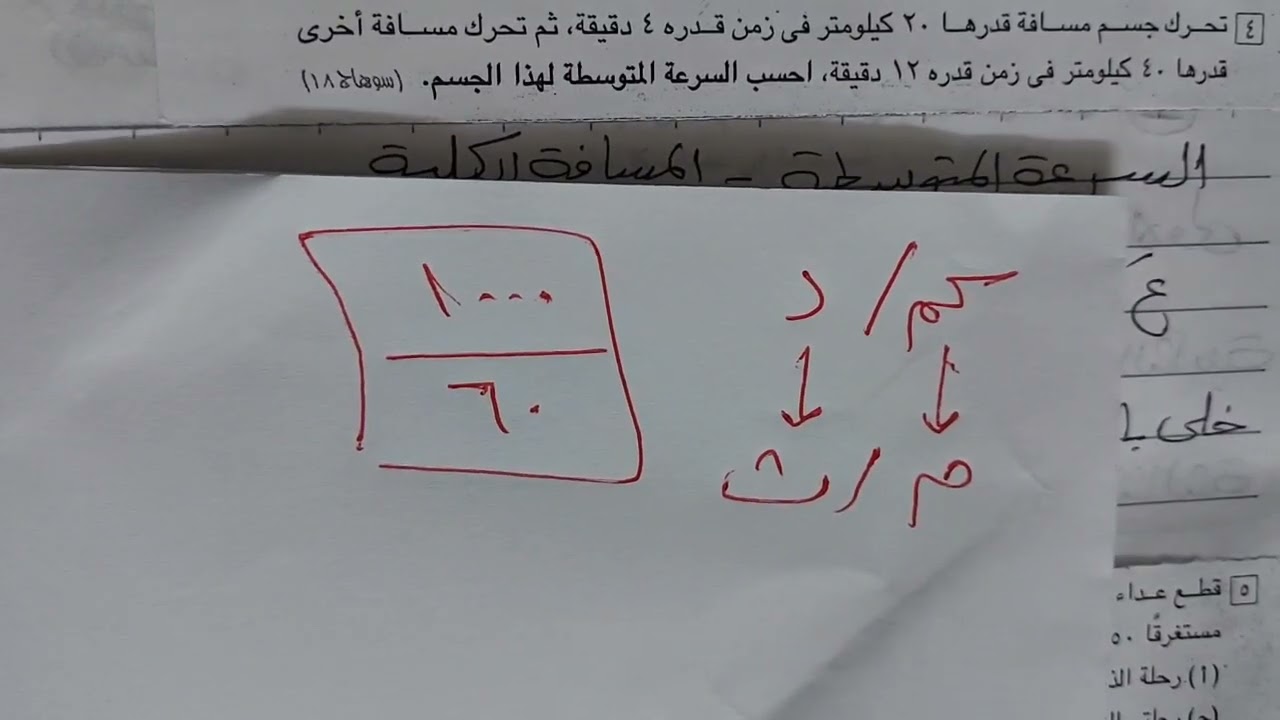 ٤ تحرك جسم مسافة قدرها ٢٠ كيلومتر فى زمن قدره ٤ دقيقة، ثم تحرك مسافة أخرى
قدرها ٤٠ كيلومتر فى زمن قدره ١٢ دقيقة، احسب السرعة المتوسطة لهذا الجسم. (سوهاج ١٨)
السرعة المتوسطة = المسافة الكلية
كم/د
١٠٠٠
٦٠
م/ث
عَ
خلى با
٥ قطع عداء
مستغرقًا ٥٠
(١) رحلة الذ